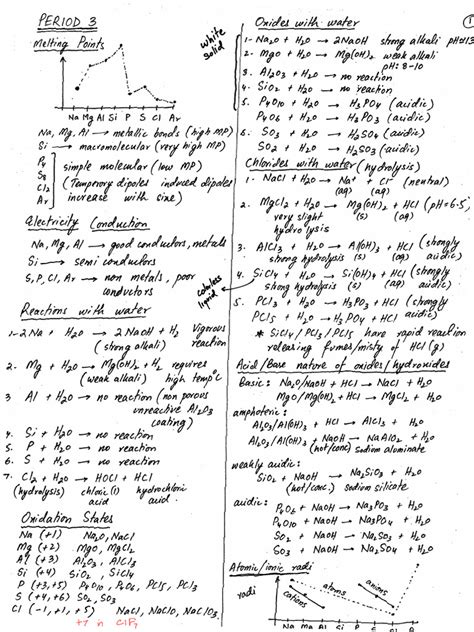 PERIOD 3
Melting Points
Na Mg Al Si P S Cl Ar
Na, Mg, Al → metallic bonds (high MP)
Si → macromolecular (very high MP)
P4
S8
Cl2
Ar
simple molecular (low MP)
(Temperory dipoles induced dipoles
increase with size)
Electricity Conduction
Na, Mg, Al → good conductors, metals
Si → semi conductors
S, P, Cl, Ar → non metals, poor
conductors
Reactions with water
1- 2Na + H2O → 2NaOH + H2 Vigorous
(strong alkali) reaction
2. Mg + H2O → Mg(OH)2 + H2 requires
(weak alkali) high temp°C
3 Al + H2O → no reaction (non porous
unreactive Al2O3
coating)
4. Si + H2O → no reaction
5. P + H2O → no reaction
6. S + H2O → no reaction
7. Cl2 + H2O → HOCl + HCl
(hydrolysis) chloric (1) hydrochloric
acid acid
Oxidation States
Na (+1) Na2O, NaCl
Mg (+2) MgO, MgCl2
Al (+3) Al2O3, AlCl3
Si (+4) SiO2, SiCl4
P (+3,+5) P4O10, P4O6, PCl5, PCl3
S (+4,+6) SO2, SO3
Cl (-1, +1, +5) NaCl, NaClO, NaClO3
Oxides with water
1
white
solid
1- Na2O + H2O → 2NaOH strong alkali pH=13
2- MgO + H2O → Mg(OH)2 weak alkali
pH: 8-10
3. Al2O3 + H2O → no reaction
4. SiO2 + H2O → no reaction
5. P4O10 + H2O → H3PO4 (acidic)
P4O6 + H2O → H3PO3 (acidic)
6. SO3 + H2O → H2SO4 (acidic)
SO2 + H2O → H2SO3 (acidic)
Chlorides with water (hydrolysis)
1. NaCl + H2O → Na+ + Cl- (neutral)
(aq) (aq)
2. MgCl2 + H2O → Mg(OH)2 + HCl (pH=6.5)
very slight (s) (aq)
hydrolysis
3. AlCl3 + H2O → Al(OH)3 + HCl (strongly
strong hydrolysis (s) (aq) acidic)
colorless
liquid
4. SiCl4 + H2O → Si(OH)4 + HCl (strongly
strong hydrolysis (s) (aq) acidic)
5. PCl3 + H2O → H3PO3 + HCl (strongly
PCl5 + H2O → H3PO4 + HCl acidic)
* SiCl4/PCl3/PCl5 have rapid reaction
releasing fumes/misty of HCl(g)
Acid/Base nature of oxides/hydroxides
Basic: Na2O/NaOH + HCl → NaCl + H2O
MgO/Mg(OH)2 + HCl → MgCl2 + H2O
amphoteric:
Al2O3/Al(OH)3 + HCl → AlCl3 + H2O
Al2O3/Al(OH)3 + NaOH → NaAlO2 + H2O
(hot/conc) sodium aluminate
weakly acidic:
SiO2 + NaOH → Na2SiO3 + H2O
(hot/conc.) sodium silicate
acidic:
P4O6 + NaOH → Na3PO3 + H2O
P4O10 + NaOH → Na3PO4 + H2O
SO2 + NaOH → Na2SO3 + H2O
SO3 + NaOH → Na2SO4 + H2O
Atomic/ionic radi
radi
atoms
anions
cations
Na Mg Al Si P S Cl